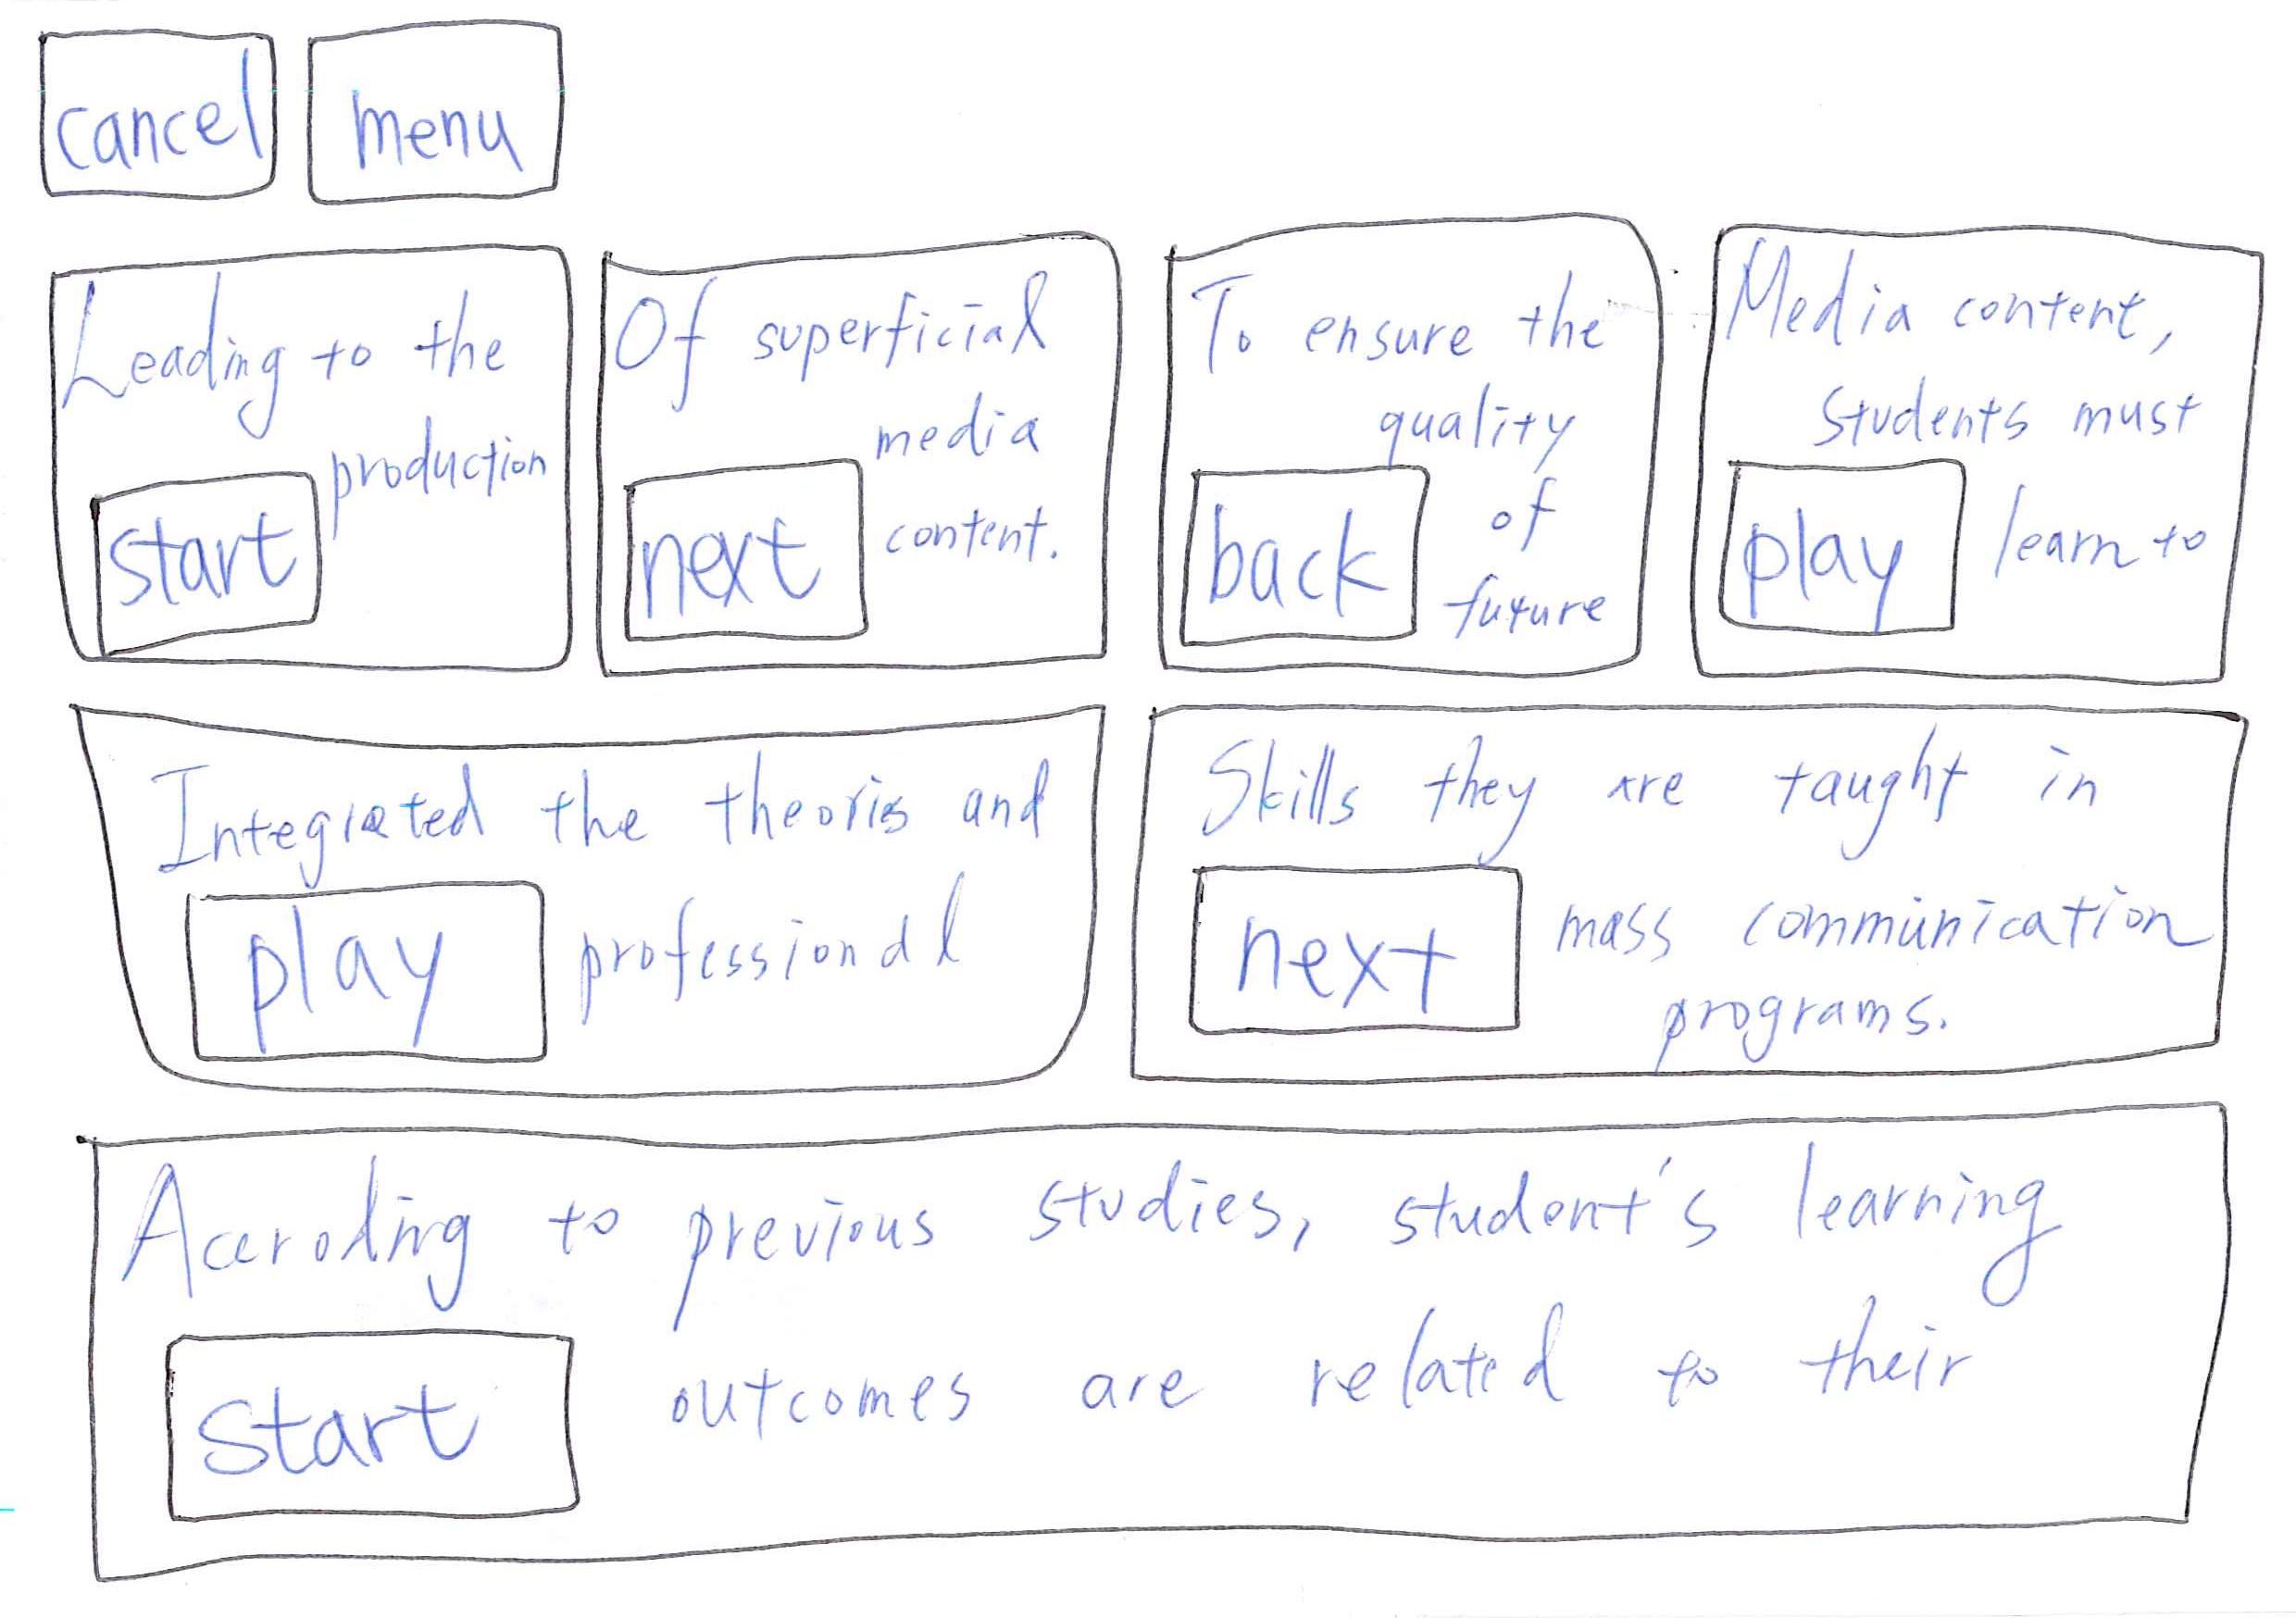 cancel menu
Leading to the
production
start
Of superficial
media
content.
next
To ensure the
quality
of
future
back
Media content,
students must
learn to
play
Integrated the theories and
professional
play
Skills they are taught in
mass communication
programs.
next
Acceroding to previous studies, student's learning
outcomes are related to their
start